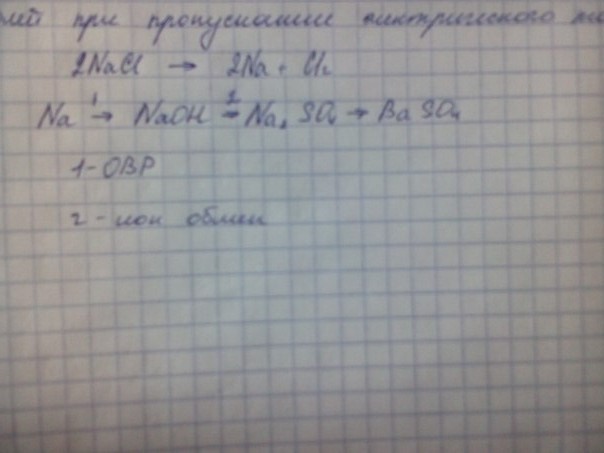 при пропускании электрического
2NaCl → 2Na + Cl₂
Na →¹ NaOH →² Na₂SO₄ → BaSO₄
1-ОВР
2 - ион обмен